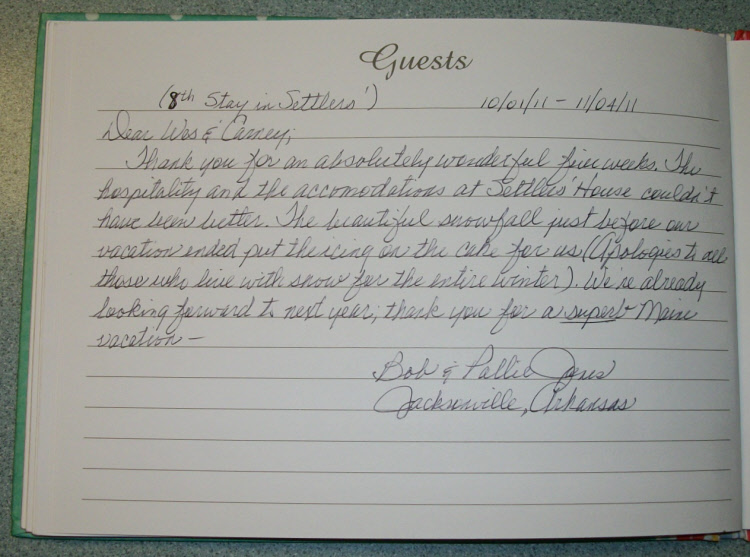 Guests
(8th Stay in Settlers') 10/01/11 - 11/04/11
Dear Wes & Carney;
Thank you for an absolutely wonderful five weeks. The
hospitality and the accomodations at Settlers' House couldn't
have been better. The beautiful snowfall just before our
vacation ended put the icing on the cake for us (Apologies to all
those who live with snow for the entire winter). We're already
looking forward to next year; thank you for a superb Maine
vacation —
Bob & Pollie Jones
Jacksonville, Arkansas